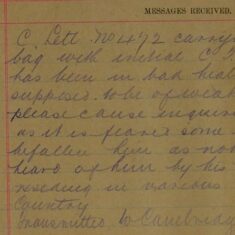 MESSAGES RECEIVED.
C. Lett No 472 carry
bag with initial C.
has been in bad heal
supposed to be of weak
please cause inquir
as it is feared some
befallen him as no
heard of him by his
residing in various
Country
transmitted to Cambridg